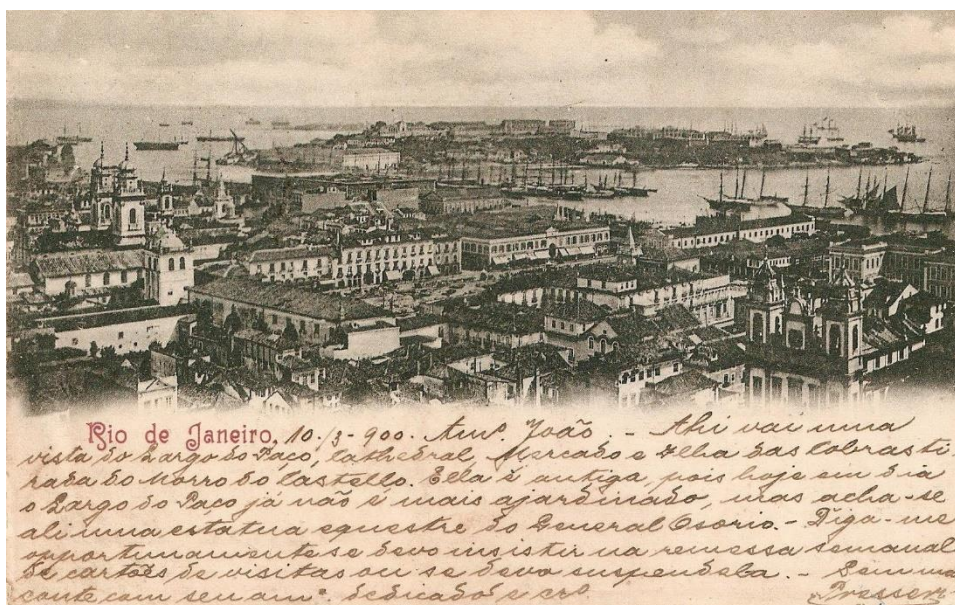 Rio de Janeiro, 10-3-900. Amº. João, - Ahi vai uma
vista do Largo do Paço, Cathedral, Mercado e Ilha das Cobras ti-
rada do Morro do Castello. Ella é antiga, pois hoje em dia
o Largo do Paço já não é mais ajardinado, mas acha-se
ali uma estatua equestre do General Osorio. - Diga-me
opportunamente se devo insistir na remessa semanal
de cartões de visitas ou se devo suspendela. -
conte com seu amº. dedicado e crº. Presser